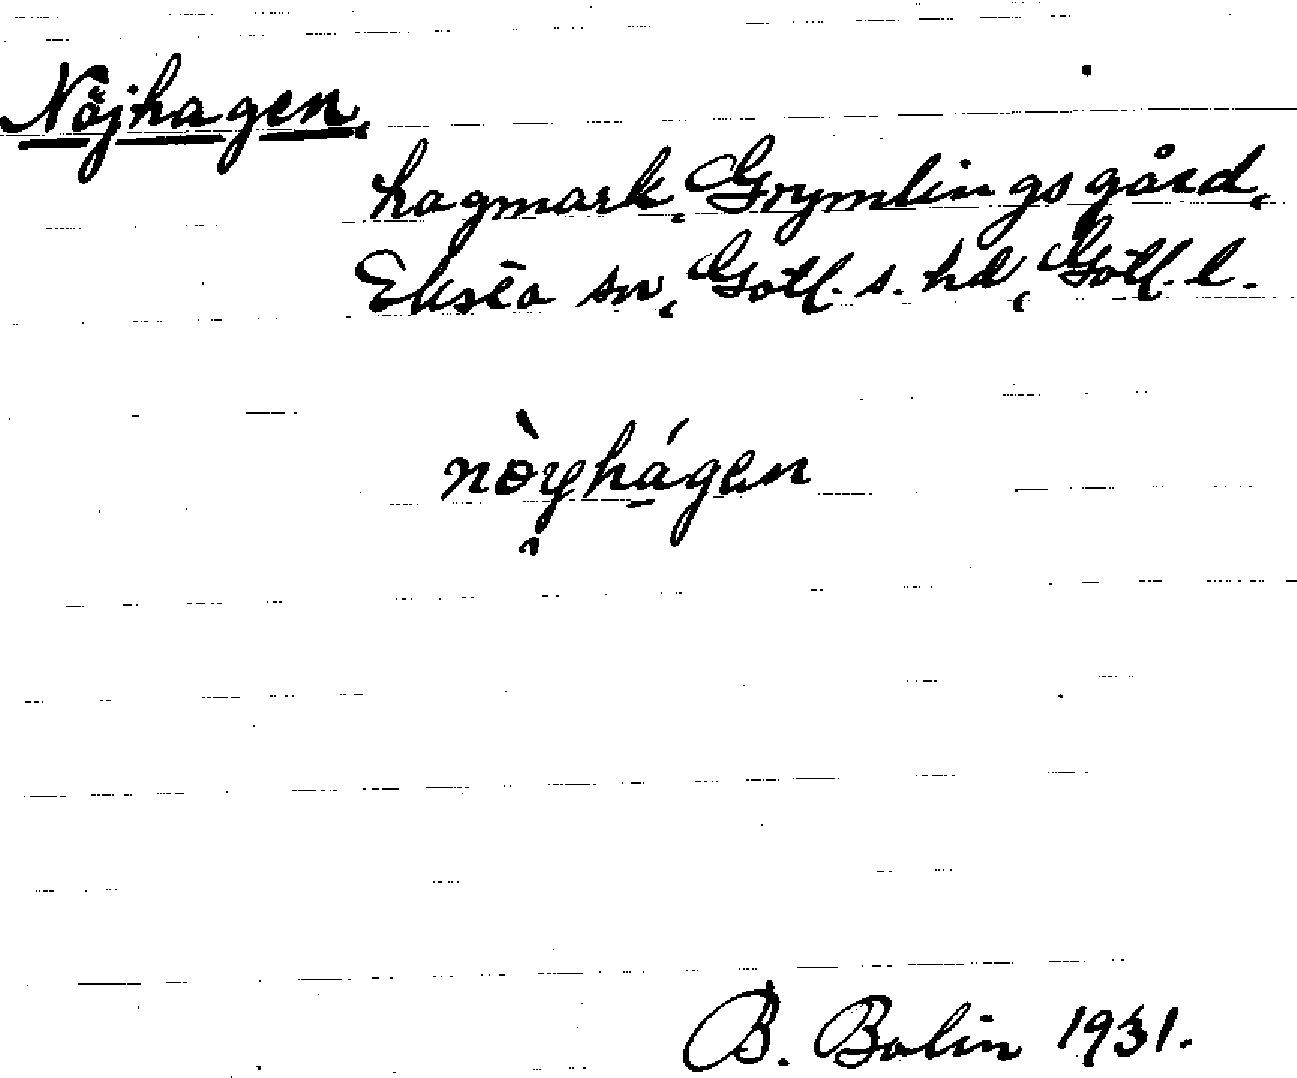 Nöjhagen,
hagmark, Grymlingsgård,
Eksta sn, Gotl. s. hd, Gotl. l.
nòyhágen
B. Bolin 1931.